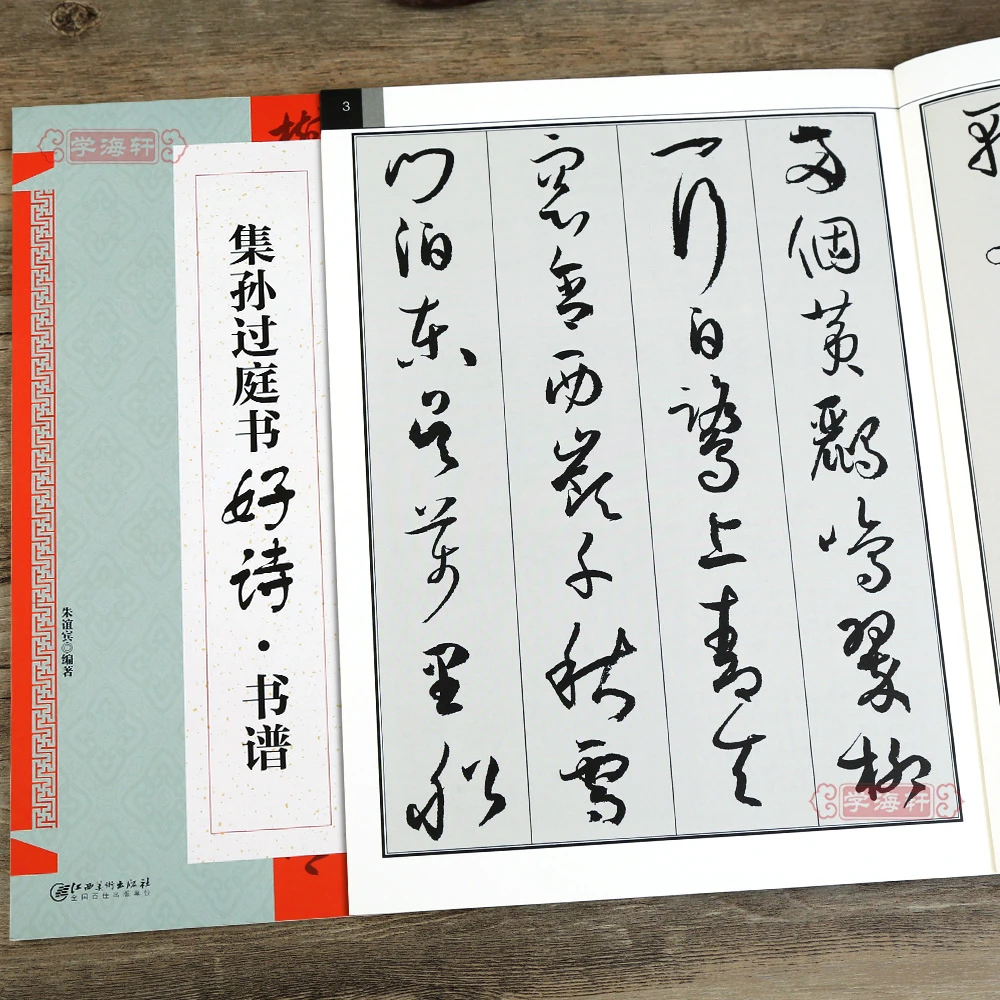 学海轩
集孙过庭书好诗·书谱
朱谊宾◎编著
江西美术出版社
全国百佳出版单位
3
两個黄鸝鳴翠柳
一行白鷺上青天
窓含西嶺千秋雪
门泊東吴万里船
学海轩